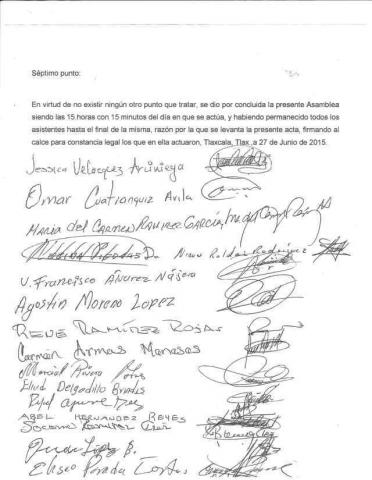 Séptimo punto:
En virtud de no existir ningún otro punto que tratar, se dio por concluida la presente Asamblea
siendo las 15 horas con 15 minutos del día en que se actúa, y habiendo permanecido todos los
asistentes hasta el final de la misma, razón por la que se levanta la presente acta, firmando al
calce para constancia legal los que en ella actuaron, Tlaxcala, Tlax, a 27 de Junio de 2015.
Jessica Velazquez Arciniega
Omar Cuatianquiz Avila
MARIA del CARMEN RAMIREZ GARCIA
Nieva Roldan Rodriguez
V. Francisco Álvarez Nájera
Agustin Moreno Lopez
RENE RAMIREZ ROJAS
Carmén Armas Meneses
Marcial Rivera
Eliud Delgadillo
ABEL HERNANDEZ REYES
Socorro Ramirez Cruz
López B.
Eliseo Parada Cortes